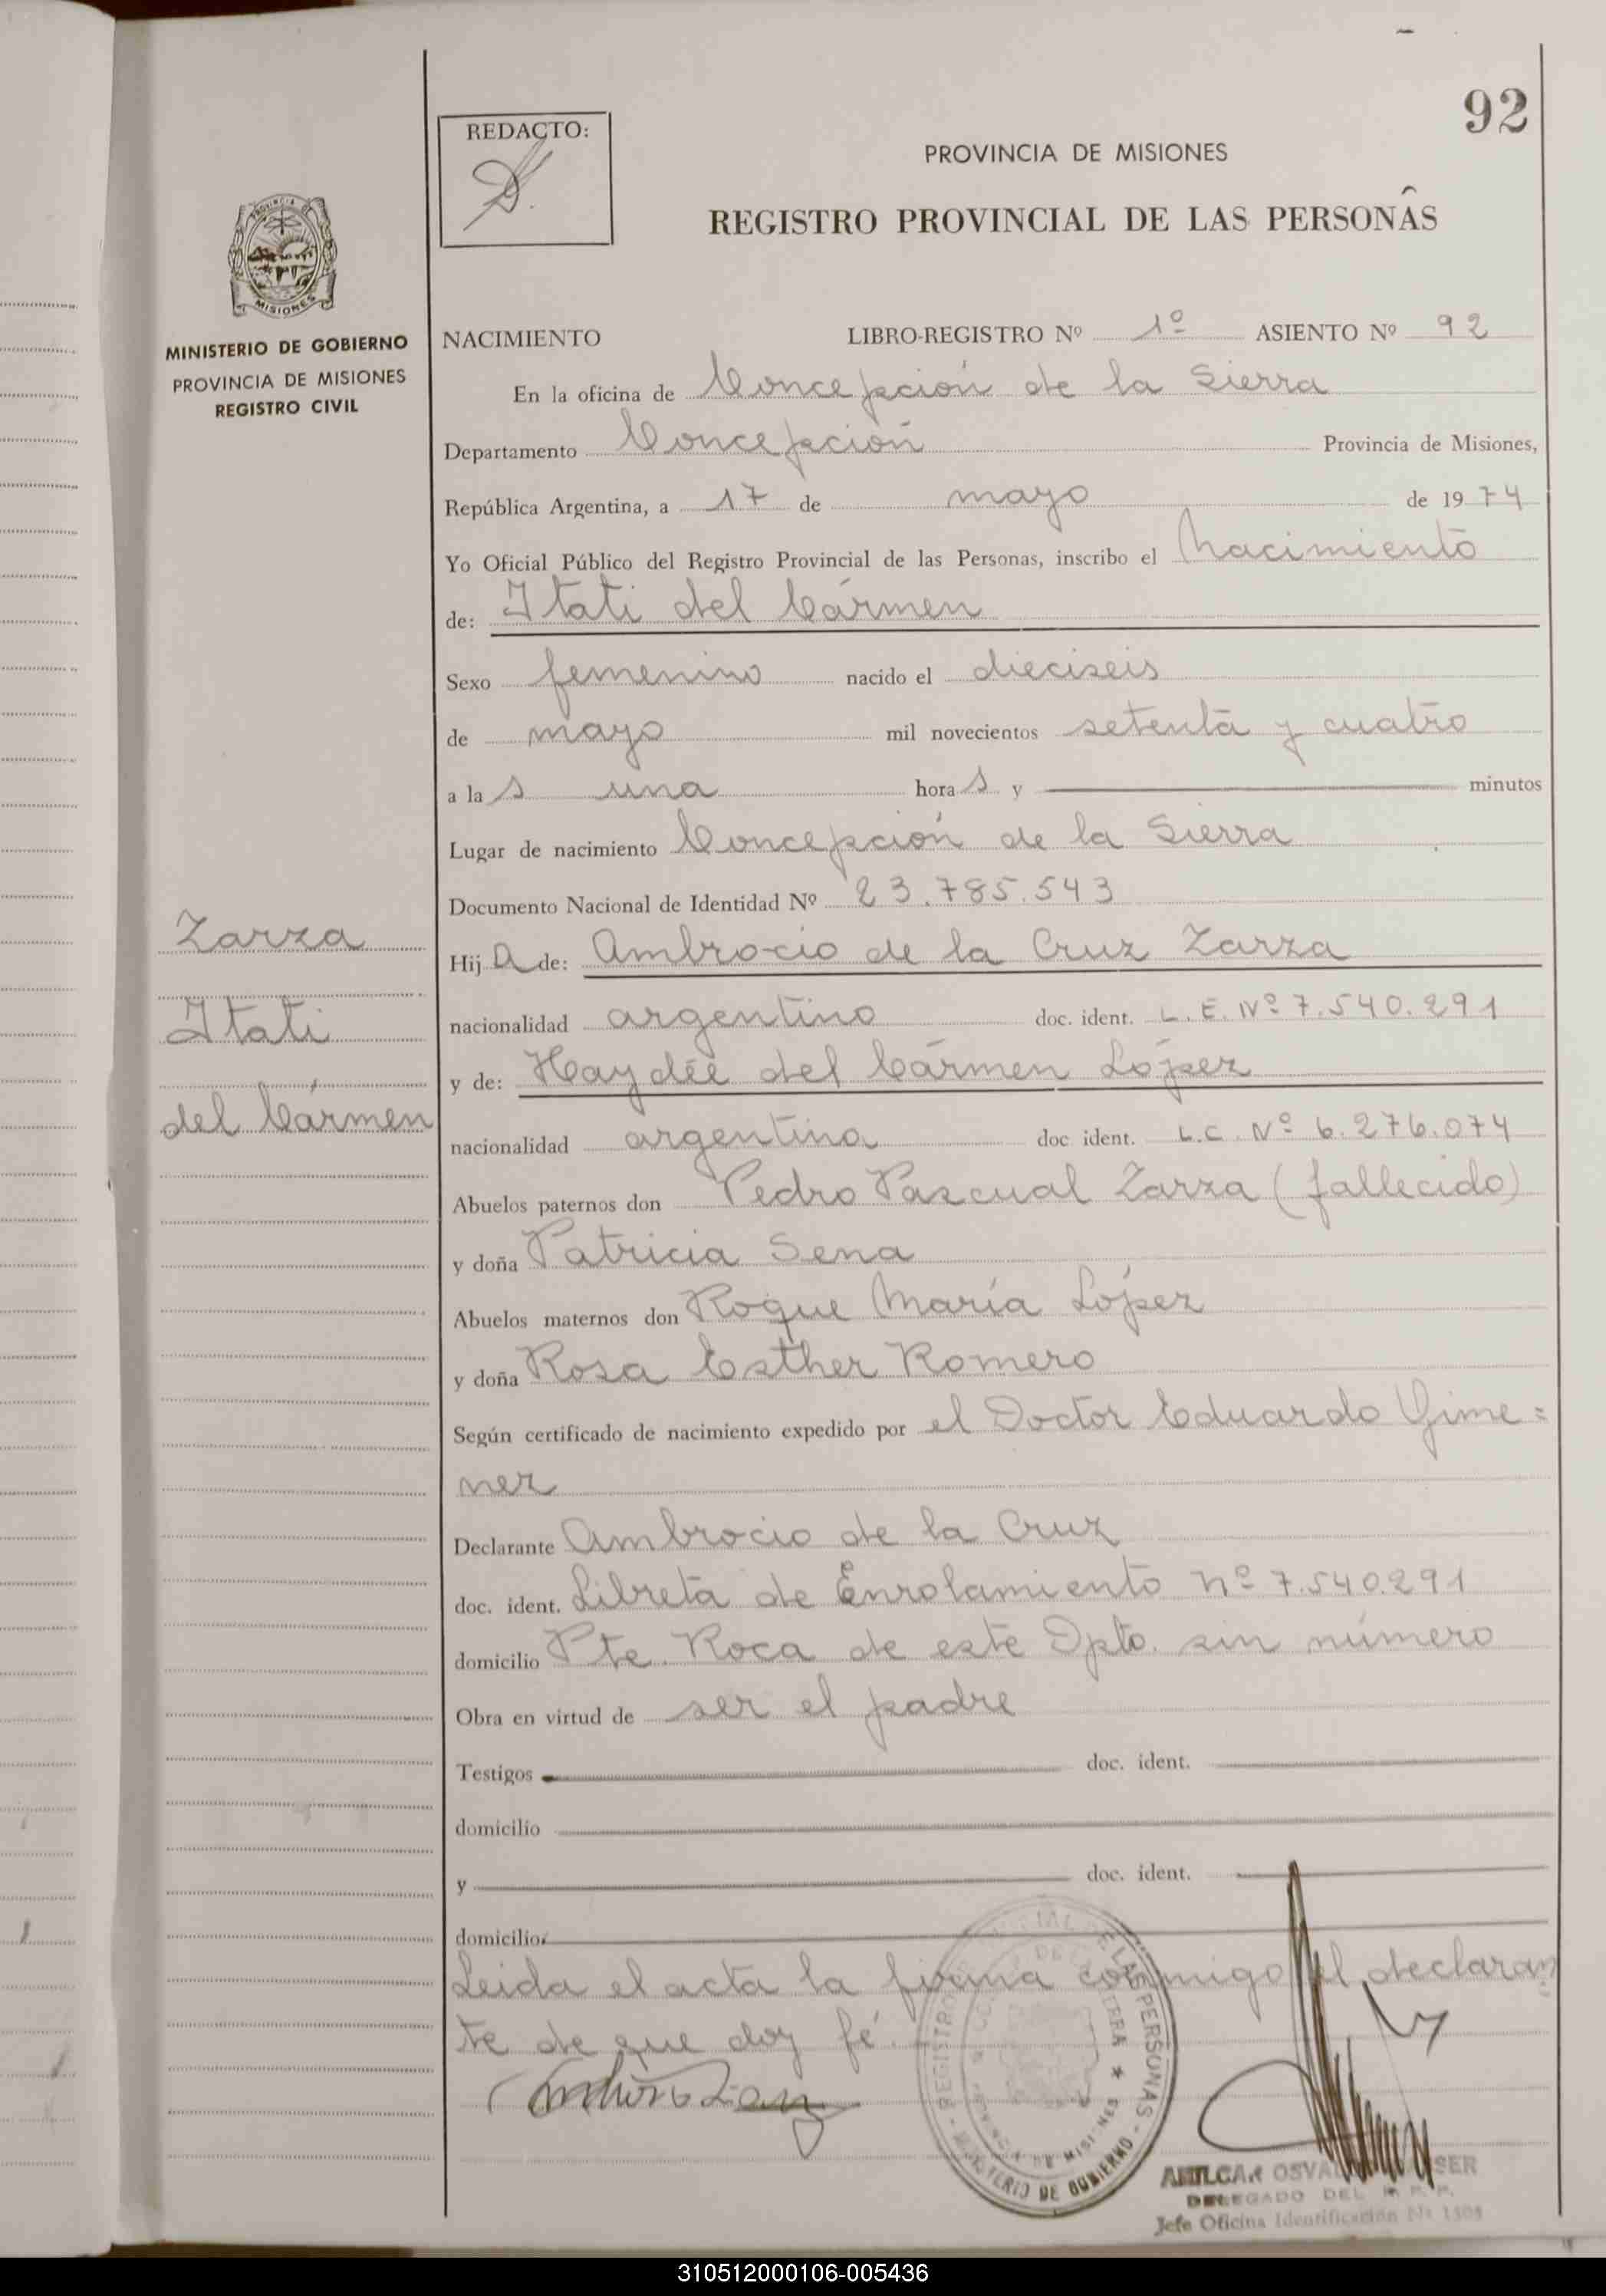 92
REDACTO:
PROVINCIA DE MISIONES
REGISTRO PROVINCIAL DE LAS PERSONAS
MISIONES
MINISTERIO DE GOBIERNO
PROVINCIA DE MISIONES
REGISTRO CIVIL
NACIMIENTO LIBRO-REGISTRO Nº 1º ASIENTO Nº 92
En la oficina de Concepción de la Sierra
Departamento Concepción Provincia de Misiones,
República Argentina, a 17 de mayo de 1974
Yo Oficial Público del Registro Provincial de las Personas, inscribo el Nacimiento
de: Itati del Cármen
Sexo femenino nacido el dieciseis
de mayo mil novecientos setenta y cuatro
a las una horas y minutos
Lugar de nacimiento Concepción de la Sierra
Documento Nacional de Identidad Nº 23.785.543
Zarza
Hija de: Ambrocio de la Cruz Zarza
Itati
nacionalidad argentino doc. ident. L. E. Nº 7.540.291
y de: Haydée del Cármen López
del Cármen
nacionalidad argentina doc ident. L.C. Nº 6.276.074
Abuelos paternos don Pedro Pascual Zarza (fallecido)
y doña Patricia Sena
Abuelos maternos don Roque María López
y doña Rosa Esther Romero
Según certificado de nacimiento expedido por el Doctor Eduardo Gime=
nez
Declarante Ambrocio de la Cruz
doc. ident. Libreta de Enrolamiento nº 7.540.291
domicilio Pte. Roca de este Dpto. sin número
Obra en virtud de ser el padre
Testigos doc. ident.
domicilio
y doc. ident.
domicilio
Leida el acta la firma conmigo el declaran
te de que doy fé.
MINISTERIO DE GOBIERNO
AMILCAR
DELEGADO DEL R. P. P.
Jefe Oficina Identificación Nº 1505
310512000106-005436